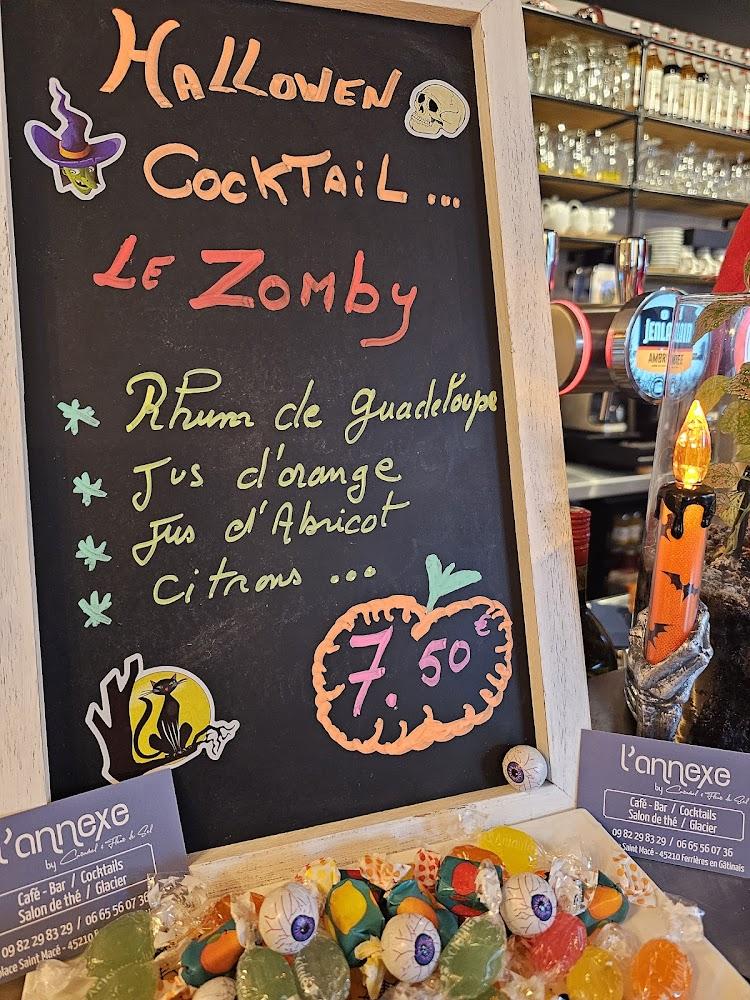 HALLOWEN
COCKTAIL ...
LE ZOMBY
Rhum de Guadeloupe
Jus d'orange
Jus d'Abricot
Citrons ...
7.50€
JENLAIN
l'annexe
by
Café - Bar / Cocktails
Salon de thé / Glacier
09 82 29 83 29 / 06 65 56 07 36
Place Saint Macé - 45210
l'annexe
by
Café - Bar / Cocktails
Salon de thé / Glacier
09 82 29 83 29 / 06 65 56 07 36
Saint Macé - 45210 Ferrières en Gâtinais